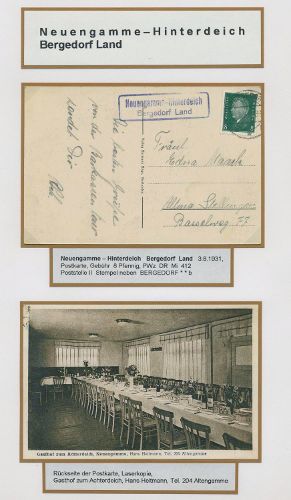 Neuengamme–Hinterdeich
Bergedorf Land
Neuengamme-Hinterdeich
Bergedorf Land
Die besten Grüße
von der
sendet Dir
Fräul.
Edna
Alma
Neuengamme – Hinterdeich Bergedorf Land 3.8.1931,
Postkarte, Gebühr 8 Pfennig, PWz DR Mi 412
Poststelle II Stempel neben BERGEDORF * * b
Gasthof zum Achterdeich, Neuengamme, Hans Heitmann, Tel. 204 Altengamme
Rückseite der Postkarte, Laserkopie,
Gasthof zum Achterdeich, Hans Heitmann, Tel. 204 Altengamme